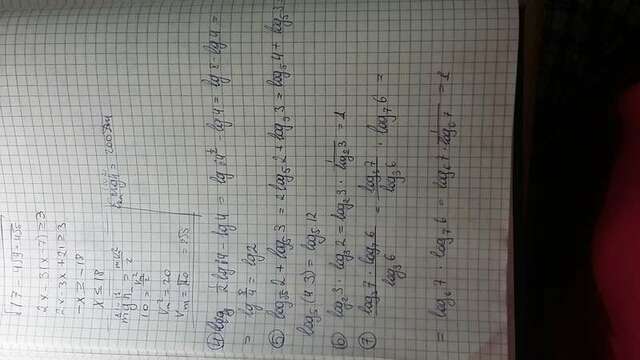 √17 - 4√9 - 4√5
2x - 3(x - 7) ≥ 3
2x - 3x + 21 ≥ 3
-x ≥ -18
x ≤ 18
mgh = mv²/2
10 = v²/2
v² = 20
④ 1/2 lg 64 - lg 4 = lg 64^½ - lg 4 = lg 8 - lg 4 =
= lg 8/4 = lg 2
⑤ log√5 2 + log5 3 = 2 log5 2 + log5 3 = log5 4 + log5 3
log5 (4·3) = log5 12
⑥ log2 3 · log3 2 = log2 3 · 1/log2 3 = 1
⑦ log3 7 · log7 6 / log3 6 = log3 7 / log3 6 · log7 6 =
= log6 7 · log7 6 = log6 7 · 1/log6 7 = 1